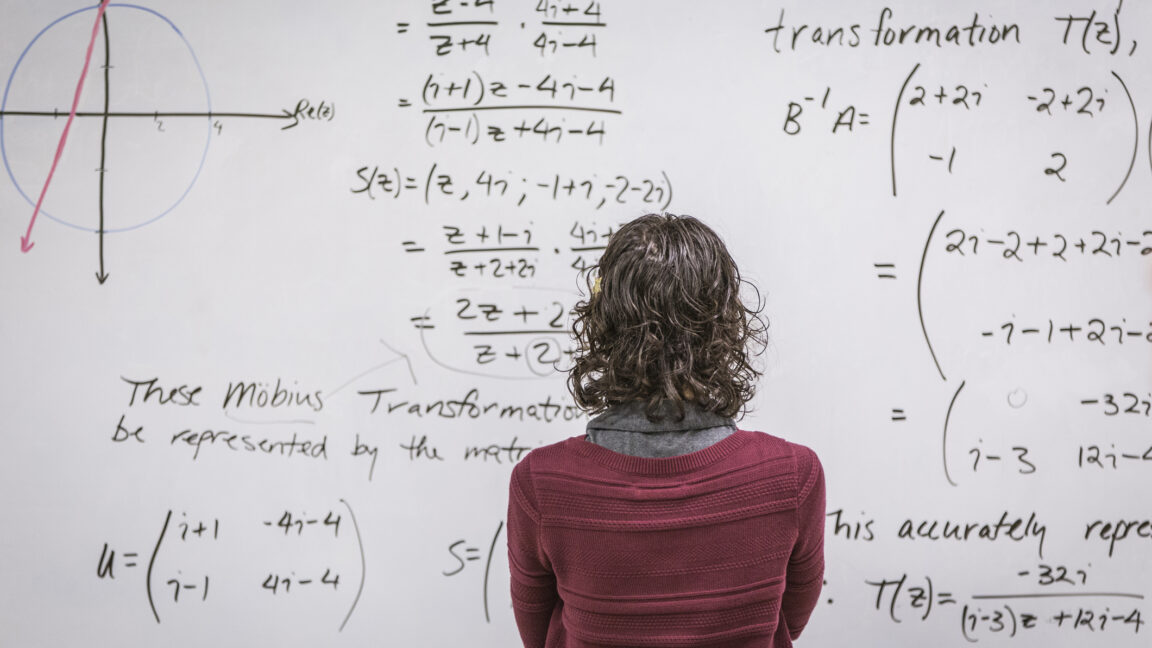 Re(z)
2 4
= z-4/z+4 · 4i+4/4i-4
= (i+1)z-4i-4/(i-1)z+4i-4
S(z)=(z, 4i; -1+i, -2-2i)
= z+1-i/z+2+2i · 4i+
= 2z+2/z+2
These Möbius Transformation
be represented by the matr
u= (i+1 -4i-4
i-1 4i-4)
S=(
transformation T(z),
B⁻¹A= (2+2i -2+2i
-1 2)(
= (2i-2+2+2i-2
-i-1+2i-2
= (0 -32i
i-3 12i-4
This accurately repres
T(z)= -32i/(i-3)z+12i-4